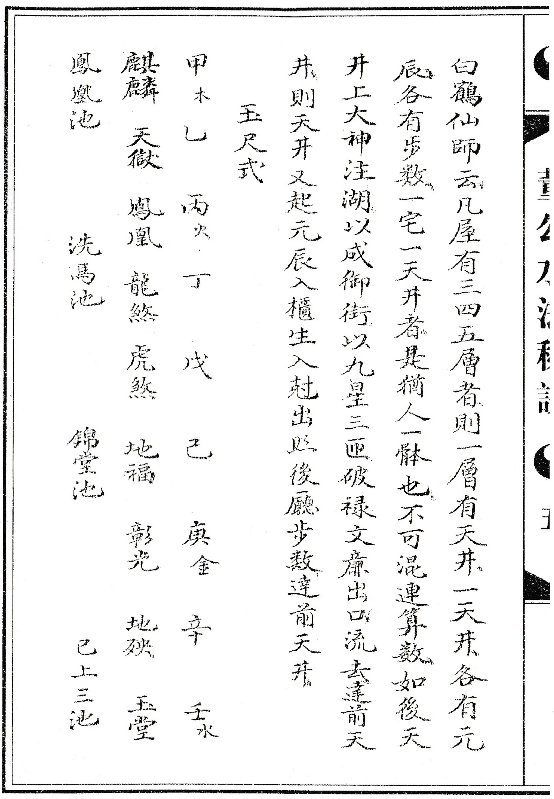 白鶴仙師云凡屋有三四五層者則一層有天井一天井各有元
辰各有步数一宅一天井者是猶人一骵也不可混連算数如後天
井上大神注湖以成御街以九星三匝破祿文廉出口流去達前天
井則天井又起元辰入櫃生入尅出照後廳步数達前天井
玉尺式
甲木 乙 丙火 丁 戊 己 庚金 辛 壬水
麒麟 天獄 鳳凰 龍煞 虎煞 地福 彰光 地殃 玉堂
鳳凰池 洗馬池 錦堂池 已上三池